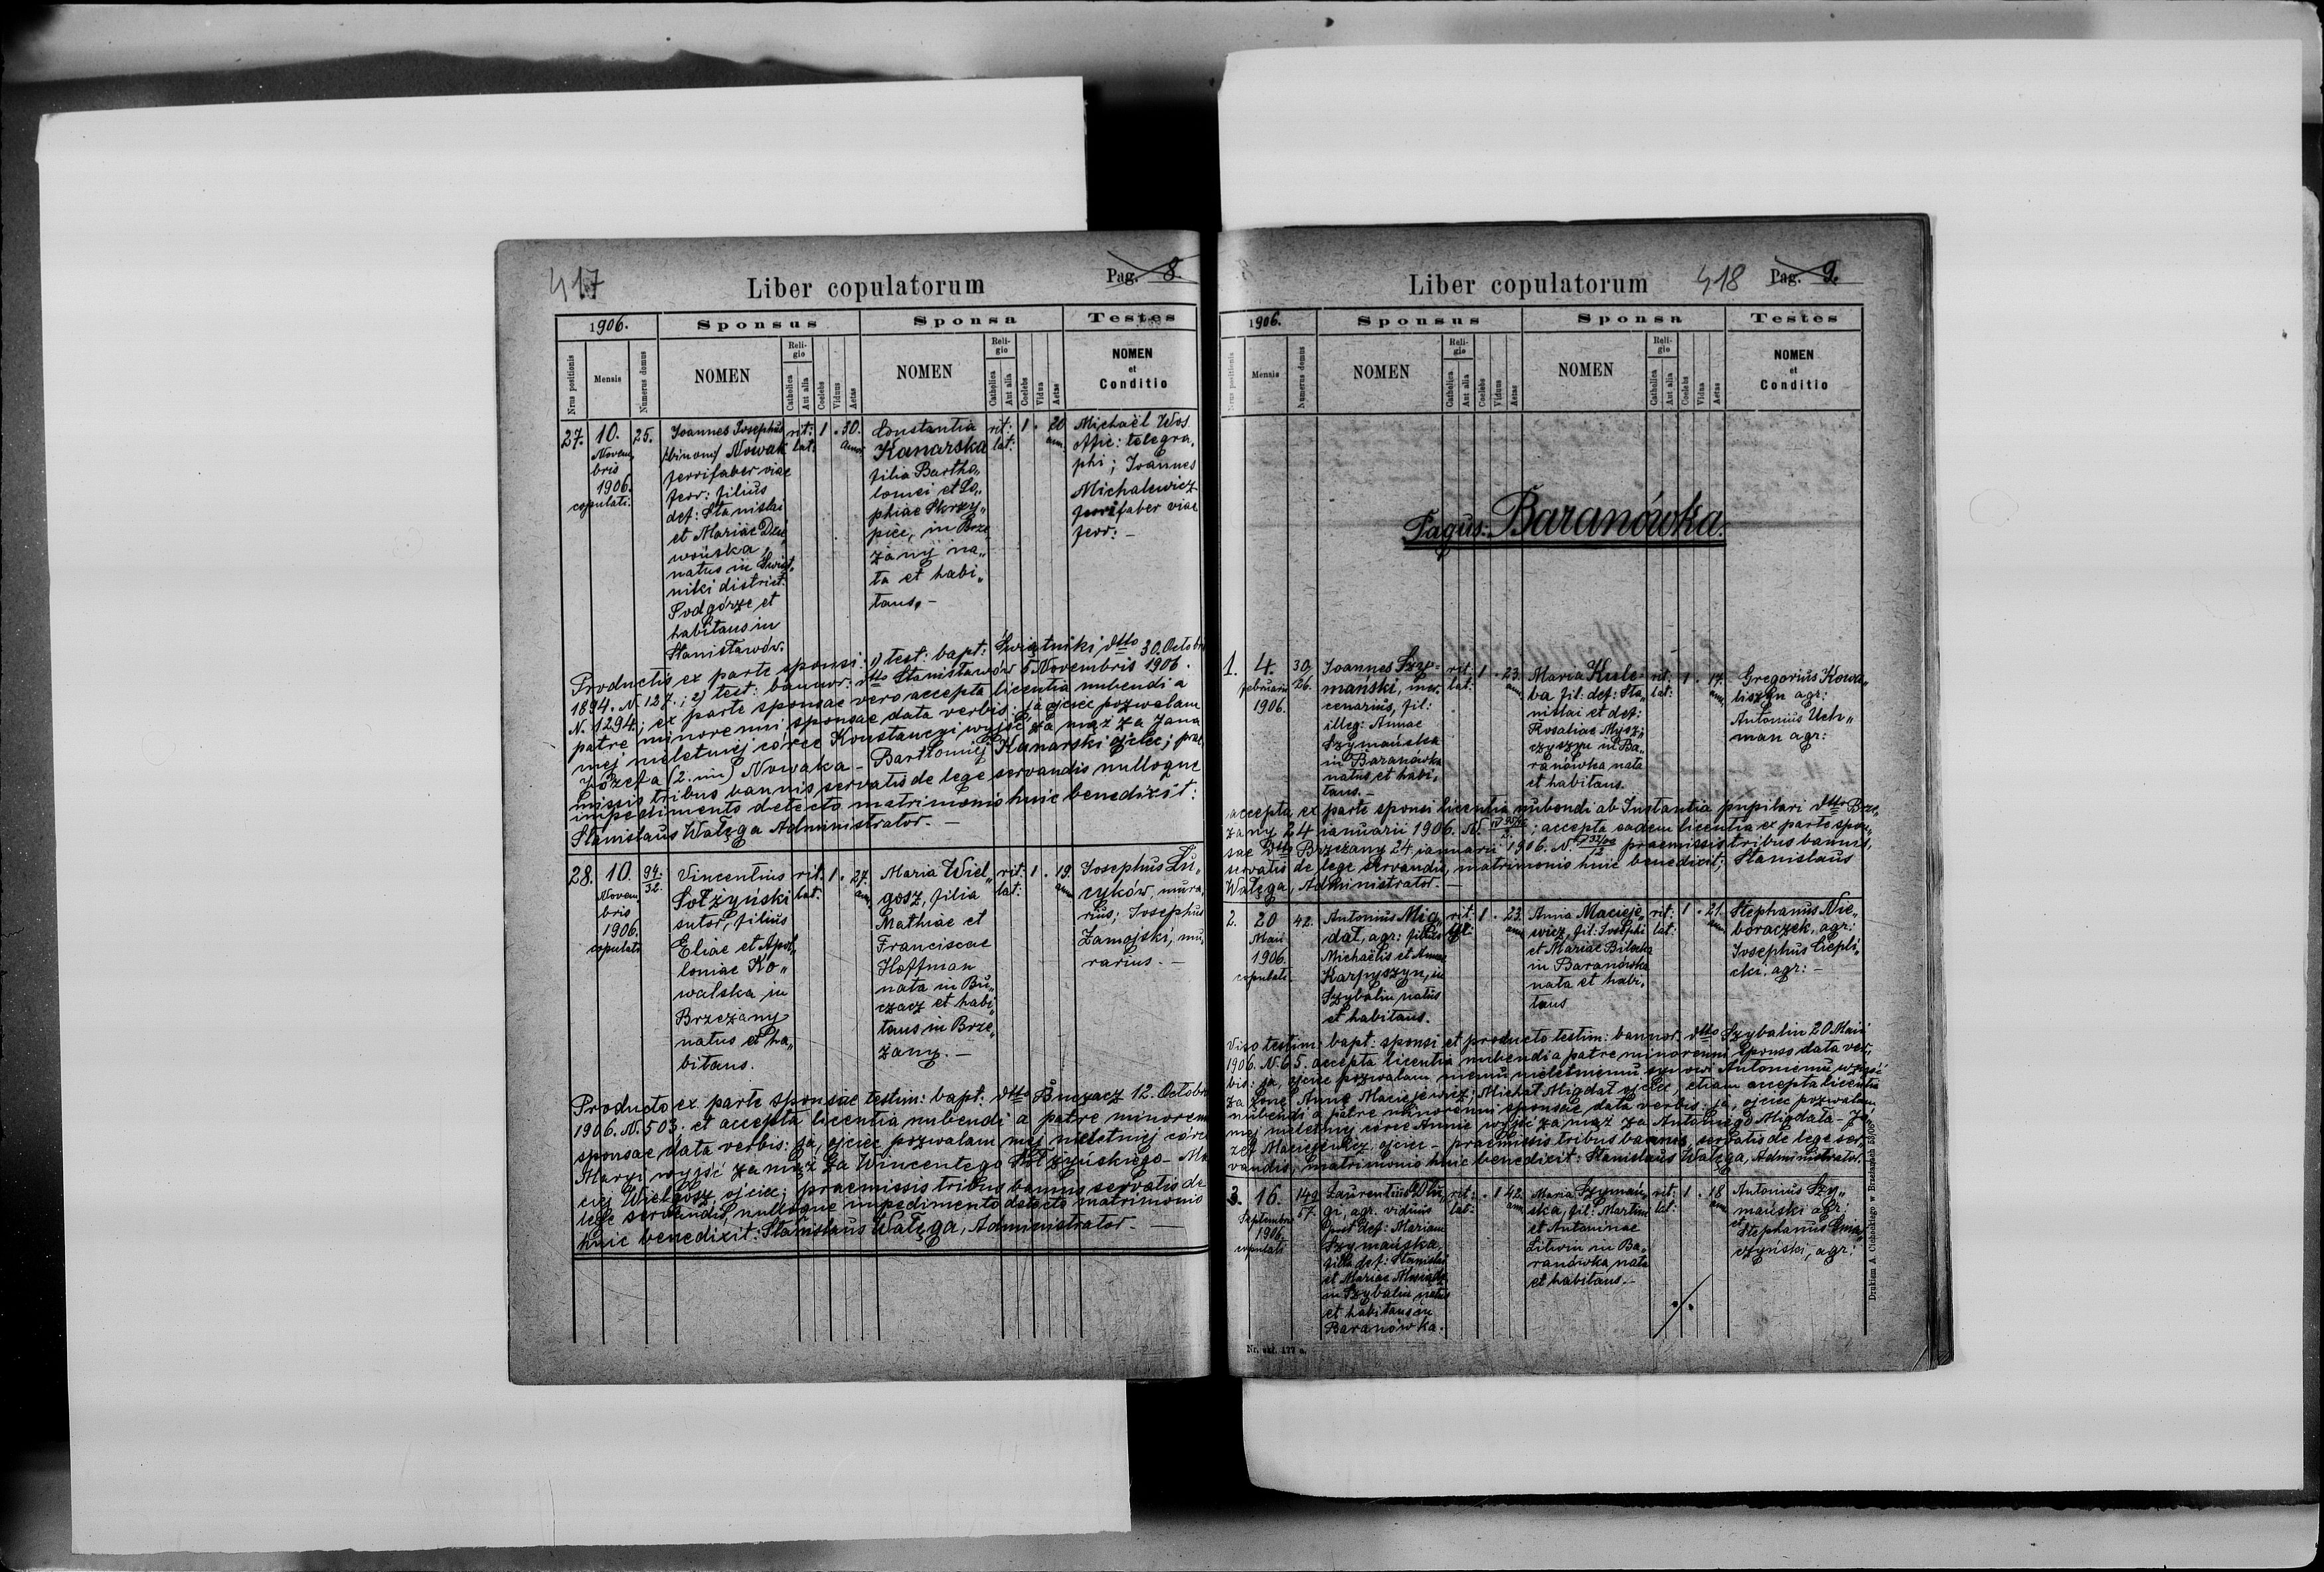 417
Liber copulatorum
Pag. 8.
1906.
Sponsus
Sponsa
Testes
Nrus positionis
Mensis
Numerus domus
NOMEN
Religio
Catholica
Aut alia
Coelebs
Viduus
Aetas
NOMEN
Religio
Catholica
Aut alia
Coelebs
Vidua
Aetas
NOMEN
et
Conditio
27.
10.
Novem,,
bris
1906.
copulati.
25.
Joannes Josephus
(binom) Nowak
ferrifaber viae
ferr: filius
def: Stanislai
et Mariae
wońska,
natus in Świąt,,
niki district.
Podgórze et
habitans in
Stanisławów.
rit:
lat:
1
.
30.
Constantia
Kanarska
filia Bartho,,
lomei et So,,
phiae Skrzy,,
piec, in Brze
żany na,,
ta et habi,,
tans. –
rit:
lat:
1
.
20
ann.
Michaël Wos
offic: telegra,,
phi; Joannes
Michalewicz
ferrifaber viae
ferr: –
Productis ex parte sponsi: 1) test: bapt: Świątniki dtto 30. Octobris
1894. N. 127.; 2) test: bannor: dtto Stanisławów 5 Novembris 1906.
N. 1294; ex parte sponsae vero accepta licentia nubendi a
patre minorenni sponsae data verbis: ja ojciec pozwalam
mej nieletniej córce Konstancyi wyjść za mąż za Jana
Józefa (2. im) Nowaka – Bartłomiej Kanarski ojciec; prae
missis tribus bannis servatis de lege servandis nulloque
impedimento detecto matrimonio huic benedixit:
Stanislaus Wałęga Administrator. –
28.
10.
Novem,,
bris
1906.
copulati
94.
32.
Vincentius
Sołżyński
sutor, filius
Eliae et Apol,,
loniae Ko,,
walska in
Brzeżany
natus et ha,,
bitans.
rit.
lat.
1
.
27.
ann.
Maria Wiel,,
gosz, filia
Mathiae et
Franciscae
Hoffman
nata in Bu,,
czacz et habi,,
tans in Brze,,
żany. –
rit:
lat:
1
.
19.
ann
Josephus Łu,,
cyków, mura,,
rius; Josephus
Zamojski, mu,,
rarius. –
Producto ex parte sponsae testim: bapt: dtto Buczacz 12. Octobris
1906. N. 503. et accepta licentia nubendi a patre minorenni
sponsae data verbis: ja, ojciec pozwalam mej nieletniej córce
Maryi wyjść za mąż za Wincentego Sołżyńskiego – Ma
ciej Wielgosz, ojciec; praemissis tribus bannis servatis de
lege servandis, nulloque impedimento detecto matrimonio
huic benedixit: Stanislaus Wałęga, Administrator. –
Liber copulatorum
418
Pag. 9.
1906.
Sponsus
Sponsa
Testes
Nrus positionis
Mensis
Numerus domus
NOMEN
Religio
Catholica
Aut alia
Coelebs
Viduus
Aetas
NOMEN
Religio
Catholica
Aut alia
Coelebs
Vidua
Aetas
NOMEN
et
Conditio
Pagus: Baranówka.
1.
4.
februarii
1906.
30.
26.
Joannes Szy=
mański, mer,,
cenarius, fil:
illeg: Annae
Szymańska
in Baranówka
natus et habi,,
tans. –
rit:
lat:
1
.
23.
ann.
Maria Kule
ba fil: def: Sta,,
nislai et def:
Rosaliae Mysz,,
czyszyn in Ba,,
ranówka nata
et habitans.
rit:
lat:
1
.
17.
ann.
Gregorius Kowa,,
liszyn agr:
Antonius Uch,,
man agr:
accepta ex parte sponsi licentia nubendi ab Instantia pupilari dtto Brze,,
żany 24 ianuarii 1906. N. ; accepta eadem licentia ex parte spon,,
sae dtto Brzeżany 24, ianuarii 1906. N. praemissis tribus bannis,
servatis de lege servandis, matrimonio huic benedixit; Stanislaus
Wałęga, Administrator. –
2.
20
Maii
1906.
copulati.
42.
Antonius Mig,,
dał, agr: filius
Michaelis et Annae
Karpyszyn, in
Szybalin natus
et habitans.
rit:
lat:
1
.
23.
ann
Anna Macieje,,
wicz, fil: Josephi
et Mariae Bilecka
in Baranówka
nata et habi,,
tans
rit:
lat:
1
.
21.
ann
Stephanus Nie,,
boraczek, agr:
Josephus Ciepli
cki, agr: –
Viso testim: bapt: sponsi et producto testim: bannor. dtto Szybalin 20 Maii
1906. N. 65. accepta licentia nubendi a patre minorenni sponso data ver,,
bis: ja, ojciec pozwalam memu nieletniemu synowi Antoniemu wziąść
za żonę Annę Maciejewicz; Michał Migdał ojciec, etiam accepta licentia
nubendi a patre minorenni sponsae data verbis: ja, ojciec pozwalam
mej nieletniej córce Annie wyjść za mąż za Antoniego Migdała – Jó,,
zef Maciejewicz, ojciec – praemissis tribus bannis, servatis de lege ser,,
vandis, matrimonio huic benedixit: Stanislaus Wałęga, Administrator.
3.
16.
Septembris
1906.
copulati
149
57.
Laurentius Dłu,,
gi, agr. viduus
post def: Mariam
Szymańska,
filius def: Stanislai
et Mariae
in Szybalin natus
et habitans in
Baranówka.
rit:
lat:
.
1
42.
ann
Maria Szymań,,
ska, fil: Martini
et Antoninae
Litwin in Ba,,
ranówka nata
et habitans. –
rit:
lat:
1
.
18
ann
Antonius Szy,,
mański agr:
et
Stephanus
czyński, agr:
./.
Nr. 177 a.
Drukiem A. Cichockiego w Brzeżanach